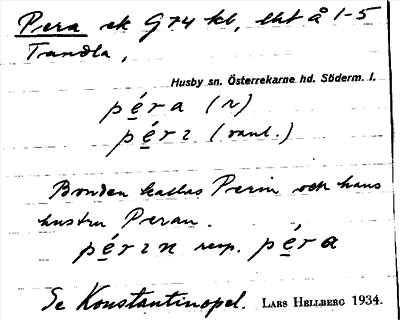 Pera ek G 74 kb, lht å 1-5
Tandla,
Husby sn. Österrekarne hd. Söderm. l.
péra (r)
pérı (vanl.)
Bonden kallas Perin och hans
hustru Peran.
pérın resp. péra
Se Konstantinopel. LARS HELLBERG 1934.